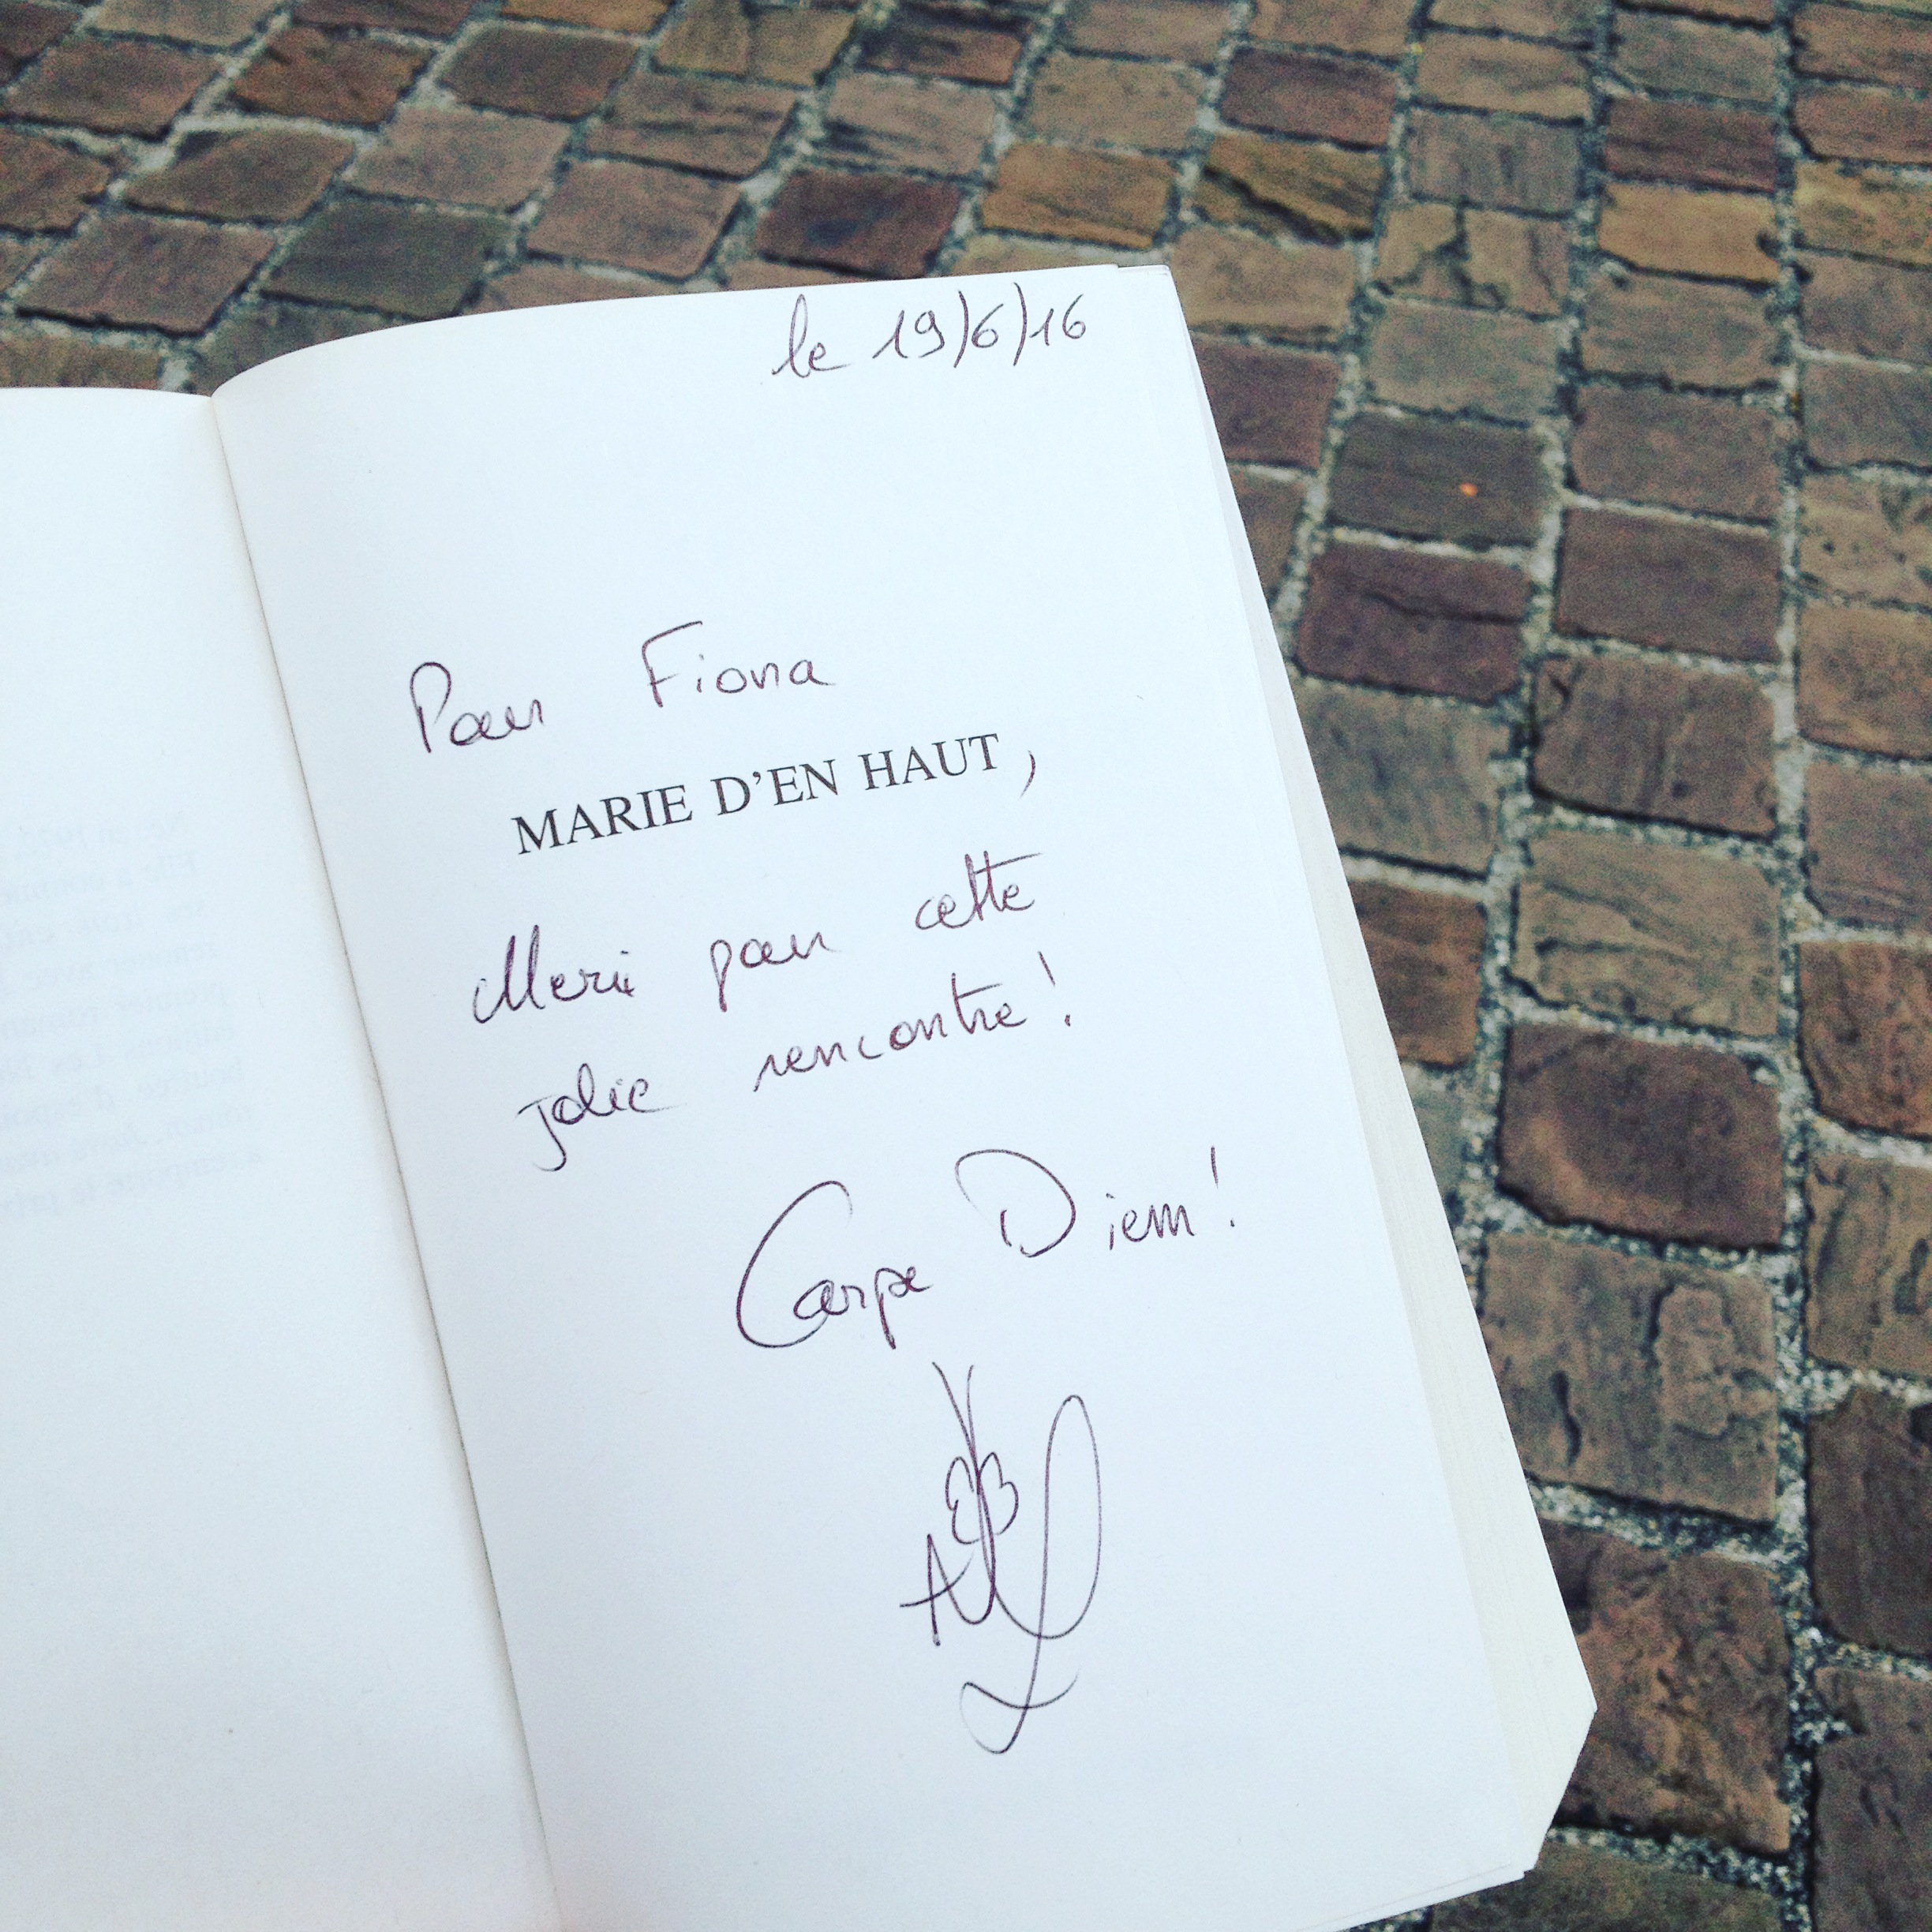 le 19/6/16
Pour Fiona
MARIE D'EN HAUT,
Merci pour cette
jolie rencontre !
Carpe Diem !